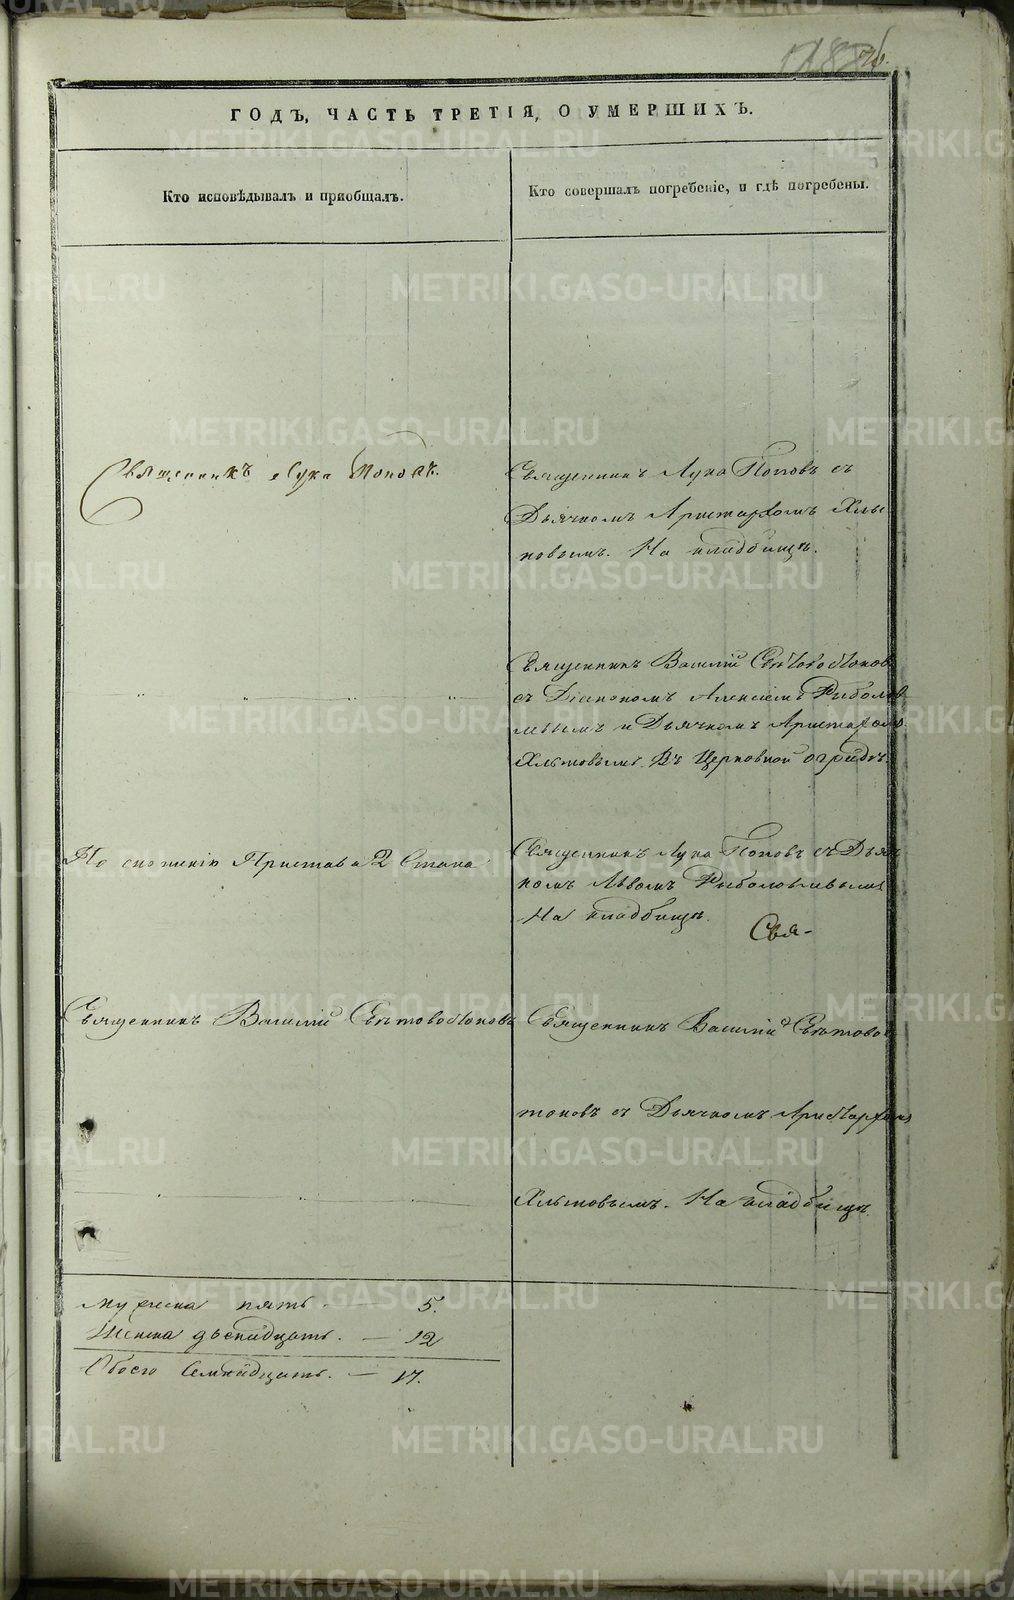 ГОДЪ, ЧАСТЬ ТРЕТІЯ, О УМЕРШИХЪ.
Кто исповѣдывалъ и приобщалъ.
Кто совершалъ погребеніе, и гдѣ погребены.
Священникъ Лука Поповъ.
Священникъ Лука Поповъ съ
Дьячкомъ Аристархомъ Хлы
новымъ. На кладбищѣ.
Священникъ Василій Свѣтовостоковъ
съ Діакономъ Алексіемъ Рыболов
левымъ и Дьячкомъ Аристархомъ
Хлыновымъ. Въ Церковной оградѣ.
По сношенію Пристава 2 Стана
Священникъ Лука Поповъ съ Дьяч
комъ Львомъ Рыболовлевымъ
На кладбищѣ.
Свя-
Священникъ Василій Свѣтовостоковъ
Священникъ Василій Свѣтовос
токовъ съ Дьячкомъ Аристархомъ
Хлыновымъ. На кладбищѣ.
Мужеска пять. — 5.
Женска двѣнадцать. — 12
Обоего Семнадцать. — 17.
METRIKI.GASO-URAL.RU